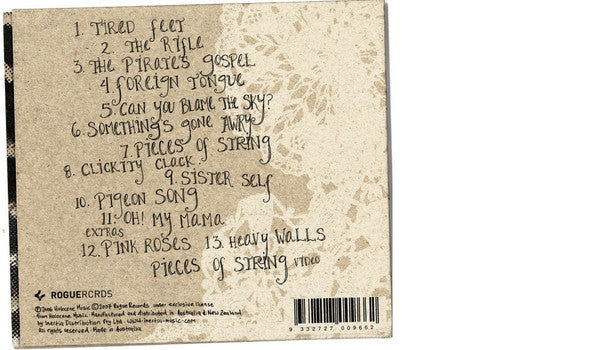 1. TIRED FEET
2. THE RIFLE
3. THE PIRATE'S GOSPEL
4 FOREIGN TONGUE
5. CAN YOU BLAME THE SKY?
6. SOMETHING'S GONE AWRY
7. PIECES OF STRING
8. CLICKITY CLACK.
9. SISTER SELF
10. PIGEON SONG
11. OH! MY MAMA
EXTRAS
12. PINK ROSES 13. HEAVY WALLS
PIECES OF STRING VIDEO
ROGUERCRDS
©2006 Holocene Music ℗2007 Rogue Records under exclusive license
from Holocene Music. Manufactured and distributed in Australia & New Zealand
by Inertia Distribution Pty Ltd. www.inertia-music.com
All rights reserved. Made in Australia
9 332727 009662